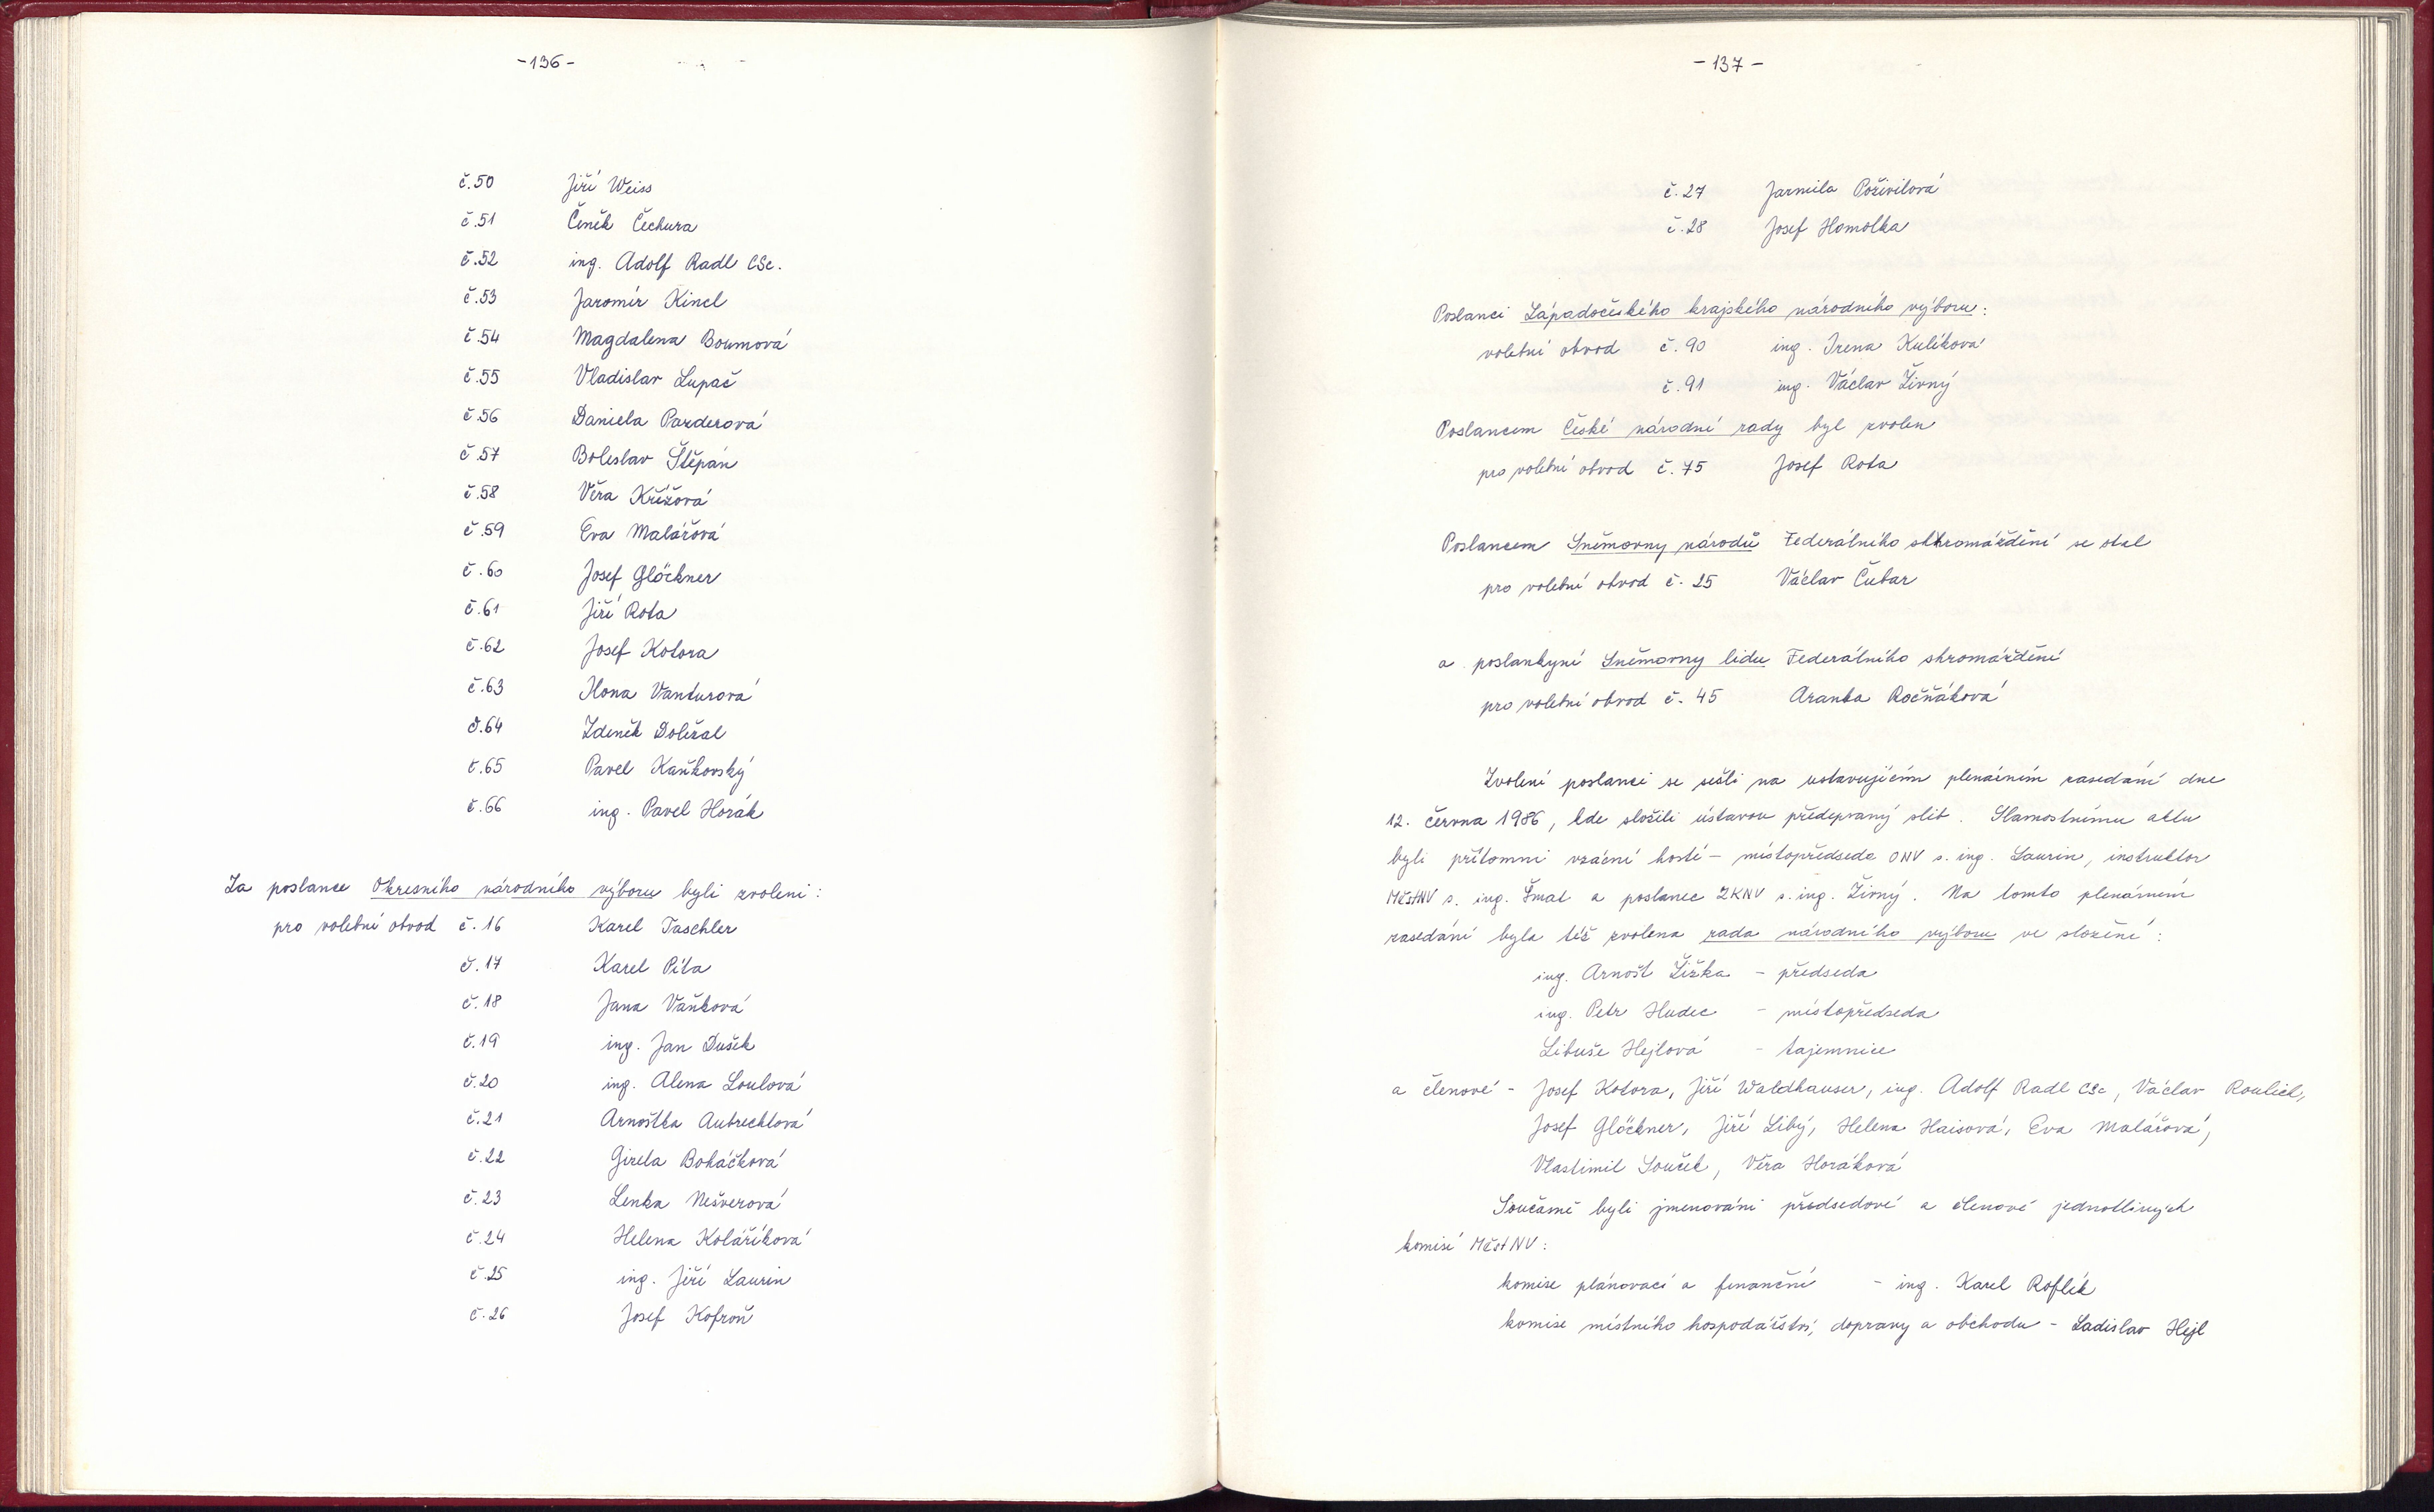 -136-
č.50 Jiří Weiss
č.51 Čeněk Čechura
č.52 ing. Adolf Radl CSc.
č.53 Jaromír Kincl
č.54 Magdalena Boumová
č.55 Vladislav Lupač
č.56 Daniela Pazderová
č.57 Boleslav Štěpán
č.58 Věra Křížová
č.59 Eva Malářová
č.60 Josef Glöckner
č.61 Jiří Rota
č.62 Josef Kotora
č.63 Ilona Vanturová
č.64 Zdeněk Doležal
č.65 Pavel Kaňkovský
č.66 ing. Pavel Horák
Za poslance Okresního národního výboru byli zvoleni:
pro volební obvod č.16 Karel Taschler
č.17 Karel Píta
č.18 Jana Vaňková
č.19 ing. Jan Dušek
č.20 ing. Alena Loulová
č.21 Arnoštka Aubrechtová
č.22 Gizela Boháčková
č.23 Lenka Nešverová
č.24 Helena Koláříková
č.25 ing. Jiří Laurin
č.26 Josef Kofroň
-137-
č.27 Jarmila Poživilová
č.28 Josef Homolka
Poslanci Západočeského krajského národního výboru:
volební obvod č.90 ing. Irena Kulíková
č.91 ing. Václav Živný
Poslancem České národní rady byl zvolen
pro volební obvod č.75 Josef Rota
Poslancem Sněmovny národů Federálního shromáždění se stal
pro volební obvod č.25 Václav Čubar
a poslankyní Sněmovny lidu Federálního shromáždění
pro volební obvod č.45 Aranka Ročňáková
Zvolení poslanci se sešli na ustavujícím plenárním zasedání dne
12. června 1986, kde složili ústavou předepsaný slib. Slavnostnímu aktu
byli přítomni vzácní hosté - místopředseda ONV s. ing. Laurin, instruktor
MěstNV s. ing. Šmat a poslanec ZKNV s. ing. Živný. Na tomto plenárním
zasedání byla též zvolena rada národního výboru ve složení:
ing. Arnošt Žižka - předseda
ing. Petr Hudec - místopředseda
Libuše Hejlová - tajemnice
a členové - Josef Kotora, Jiří Waldhauser, ing. Adolf Radl CSc, Václav Roulich,
Josef Glöckner, Jiří Libý, Helena Haisová, Eva Malářová,
Vlastimil Souček, Věra Horáková
Současně byli jmenováni předsedové a členové jednotlivých
komisí MěstNV:
komise plánovací a finanční - ing. Karel Roflík
komise místního hospodářství, dopravy a obchodu - Ladislav Hejl